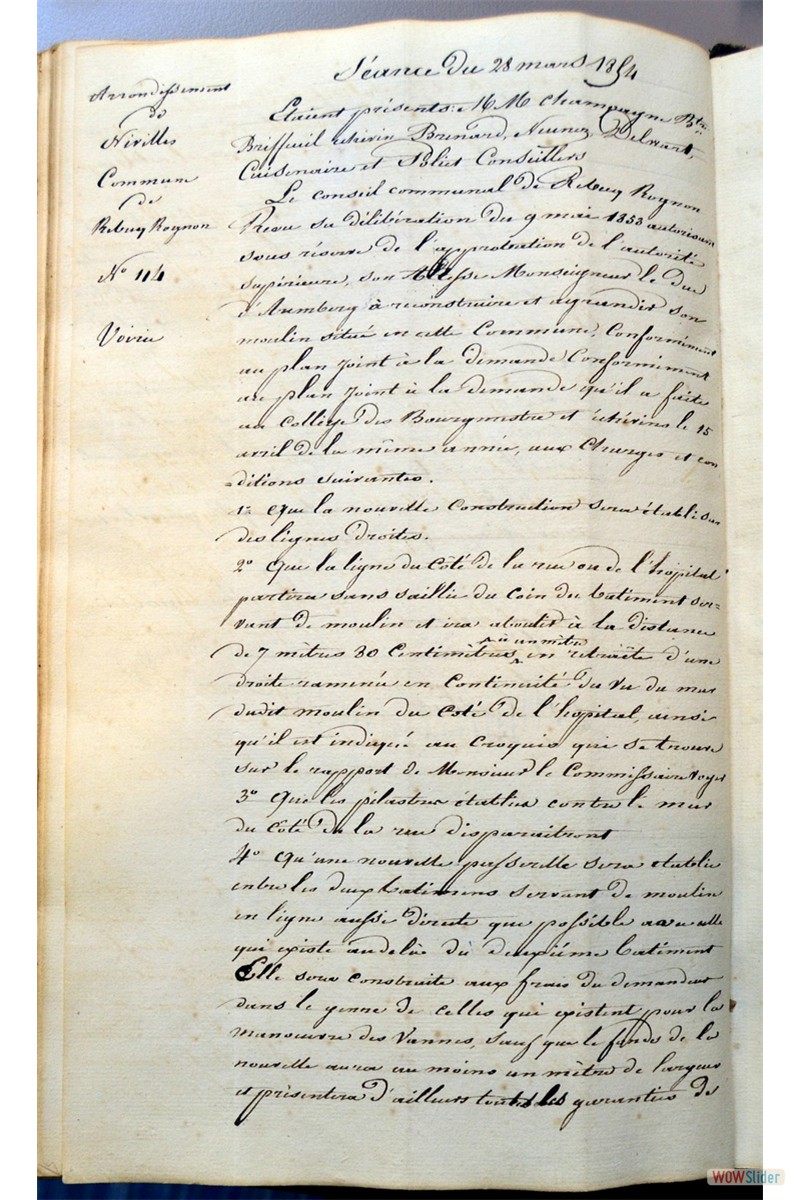 Séance du 28 mars 1854
Arrondissement
de
Nivilles
Commune
de
Rebecq Rognon
N° 114
Voirie
Etaient présents: M.M. Champagne Btre,
Briffeuil echévin Brunard, Delwart,
Cuisenaire et Poliet Conseillers
Le conseil communal de Rebecq Rognon
Revu sa délibération du 9 mai 1853 autorisant
sous réserve de l'approbation de l'autorité
supérieure, son Altesse Monseigneur le Duc
d'Aremberg à reconstruire et agrandir son
moulin situé en cette Commune, Conformément
au plan joint à la demande Conformément
au plan joint à la demande qu'il a faite
au Collège des Bourgmestre et échévins le 15
avril de la même année, aux Charges et con
=ditions suivantes.
1° Que la nouvelle Construction sera établie sur
des lignes droites.
2° Que la ligne du côté de la rue ou de l'hopital
partira sans saillie du coin du batiment ser=
vant de moulin et ira aboutir à la distance
de 7 mètres 30 Centimètres à un mètre en retraite d'une
droite ramenée en Continuité du vu du mur
dudit moulin du coté de l'hopital, ainsi
qu'il est indiqué au Croquis qui se trouve
sur le rapport de Monsieur le Commissaire voyer
3° Que les pilastres établies contre le mur
du coté de la rue disparaitront
4° Qu'une nouvelle passerelle sera établie
entre les deux batimens servant de moulin
en ligne aussi directe que possible avec celle
qui existe audelà du deuxième batiment
Elle sera construite aux frais du demandeur
dans le genre de celles qui existent pour la
manoeuvre des Vannes, sauf que le fonds de la
nouvelle aura au moins un mètre de largeur
et présentera d'ailleurs toutes les garanties de
WOWSlider